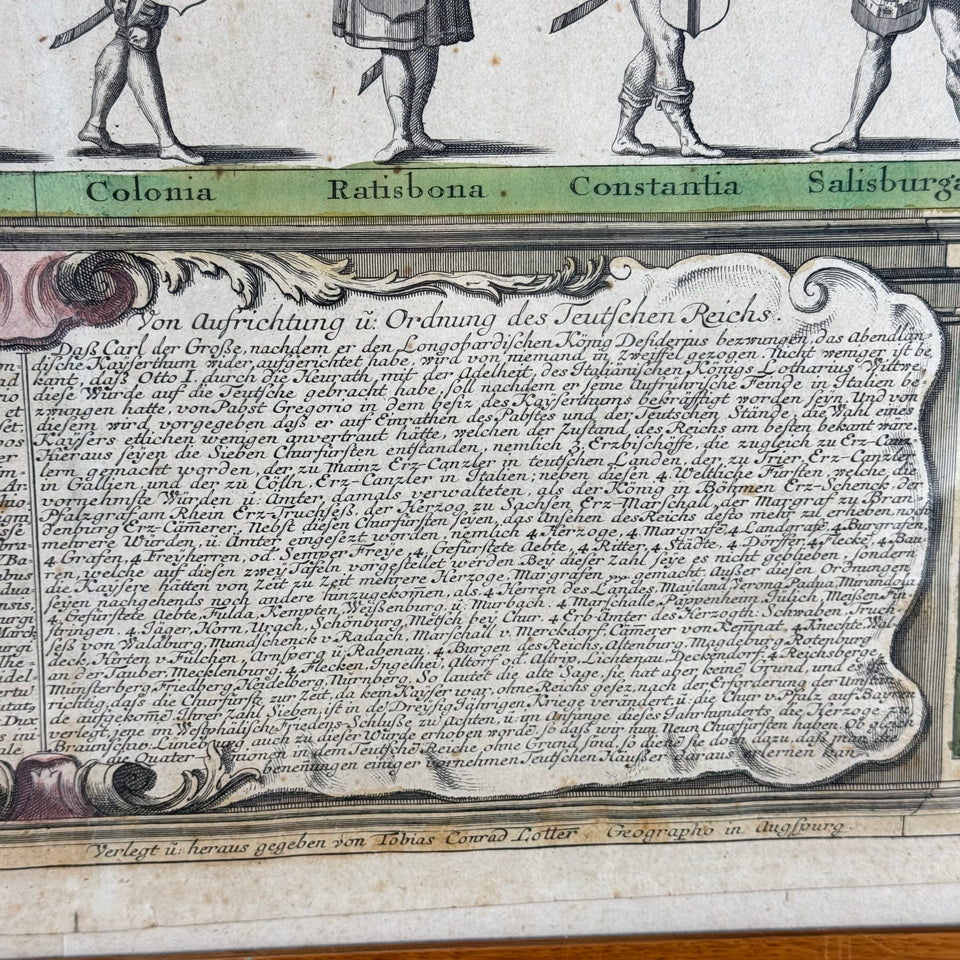 Colonia
Ratisbona .
Constantia
Salisburga
Von Aufrichtung ũ: Ordnung des Teutschen Reichs.
Daß Carl der Große, nachdem er den Longobardischen König Desiderius bezwungen, das Abendlän
dische Kayserthum wider aufgerichtet habe, wird von niemand in Zweiffel gezogen. Nicht weniger ist be
kant, daß Otto I. durch die Heurath, mit der Adelheit, des Italiänischen Königs Lotharius Wittwe
diese Würde auf die Teutsche gebracht habe, soll nachdem er seine Aufrührische Feinde in Italien be
zwungen hatte, von Pabst Gregorio in dem besiz des Kayserthums bekräfftigt worden seyn. Und von
diesem wird vorgegeben daß er auf Einrathen des Pabstes und der Teutschen Stände, die Wahl eines
Kaysers etlichen wenigen anvertraut hätte, welchen der Zustand des Reichs am besten bekant wäre.
Hieraus seyen die Sieben Churfürsten entstanden, nemlich 3, Erzbischöffe, die zugleich zu Erz-Canz
lern gemacht worden, der zu Mainz Erz-Canzler in teutschen Landen, der zu Trier, Erz-Canzler
in Gallien, und der zu Cölln, Erz-Canzler in Italien; neben diesen 4. Weltliche Fürsten, welche die
vornehmste Würden ũ: Ämter damals verwalteten, als der König in Böhmen Erz-Schenck, der
Pfalzgraf am Rhein Erz-Truchseß, der Herzog zu Sachsen Erz-Marschall, der Margraf zu Bran-
denburg Erz-Cam̃erer, Nebst diesen Churfürsten seyen, das Ansehen des Reichs desto mehr zu erheben, noch
mehrere Würden, ũ: Ämter eingesezt worden, nemlich 4 Herzoge, 4 Margrafẽ, 4 Landgrafẽ, 4 Burgrafen,
4 Grafen, 4 Freyherren, od. Semper Freye, 4, Gefürstete Aebte, 4 Ritter, 4 Städte, 4 Dörffer, 4 Flecke, 4 Bau
ren, welche auf diesen zwey Tafeln vorgestellet werden. Bey dieser Zahl seye es nicht geblieben sondern
die Kaysere hätten von Zeit zu Zeit mehrere Herzoge, Margrafen gemacht. Außer diesen Ordnungen
seyen nachgehends noch andere hinzugekom̃en, als 4 Herren des Landes, Mayland, Verona, Padua, Mirandola
4, Gefürstete Aebte, Fulda, Kempten, Weißenburg, ũ: Murbach. 4 Marschalle, Pappenheim, Jülich, Meißen, Fin
stringen. 4 Jäger, Horn, Urach, Schönburg, Metsch bey Chur. 4 Erb-Ämter des Herzogth: Schwaben, Truch
seß von Waldburg, Mundschenck v Radach, Marschall v. Merckdorf, Cämerer von Kem̃nat. 4 Knechte, Wal-
deck, Hirten v Fülchen, Arnsperg ũ Rabenau. 4 Burgen des Reichs, Altenburg, Magdelburg, Rotenburg
an der Tauber, Mecklenburg. 4, Flecken, Ingelhei, Altorf od. Astrip, Lichtenau, Deckendorf. 4 Reichsberge
Münsterberg, Friedberg, Heidelberg, Nürnberg. So lautet die alte Sage, sie hat aber keinẽ Grund, und es
richtig, daß die Churfürstẽ, zur Zeit, da kein Kayser war, ohne Reichs gesez, nach der Erforderung der Umstän
de aufgekom̃ẽ, ihrer Zahl, Sieben, ist in de Dreyßig Jährigen Kriege verändert, ũ: die Chur v: Pfalz auf Bayern
verlegt, jene im Westphälische Friedens-Schluße zu achten, ũ: im Anfange dieses Jahrhunderts die Herzoge
Braunschw: Lüneburg auch zu dieser Würde erhoben wordẽ, so daß wir nun Neun Churfürsten haben. Ob gleich
die Quater in dem Teutschẽ Reiche, ohne Grund sind, so diene sie doch dazu, daß man
benenũngen einiger vornehmen Teutschen Häußer daraus erlernen kan.
Verlegt ũ: heraus gegeben von Tobias Conrad Lotter. Geographo in Augspurg.